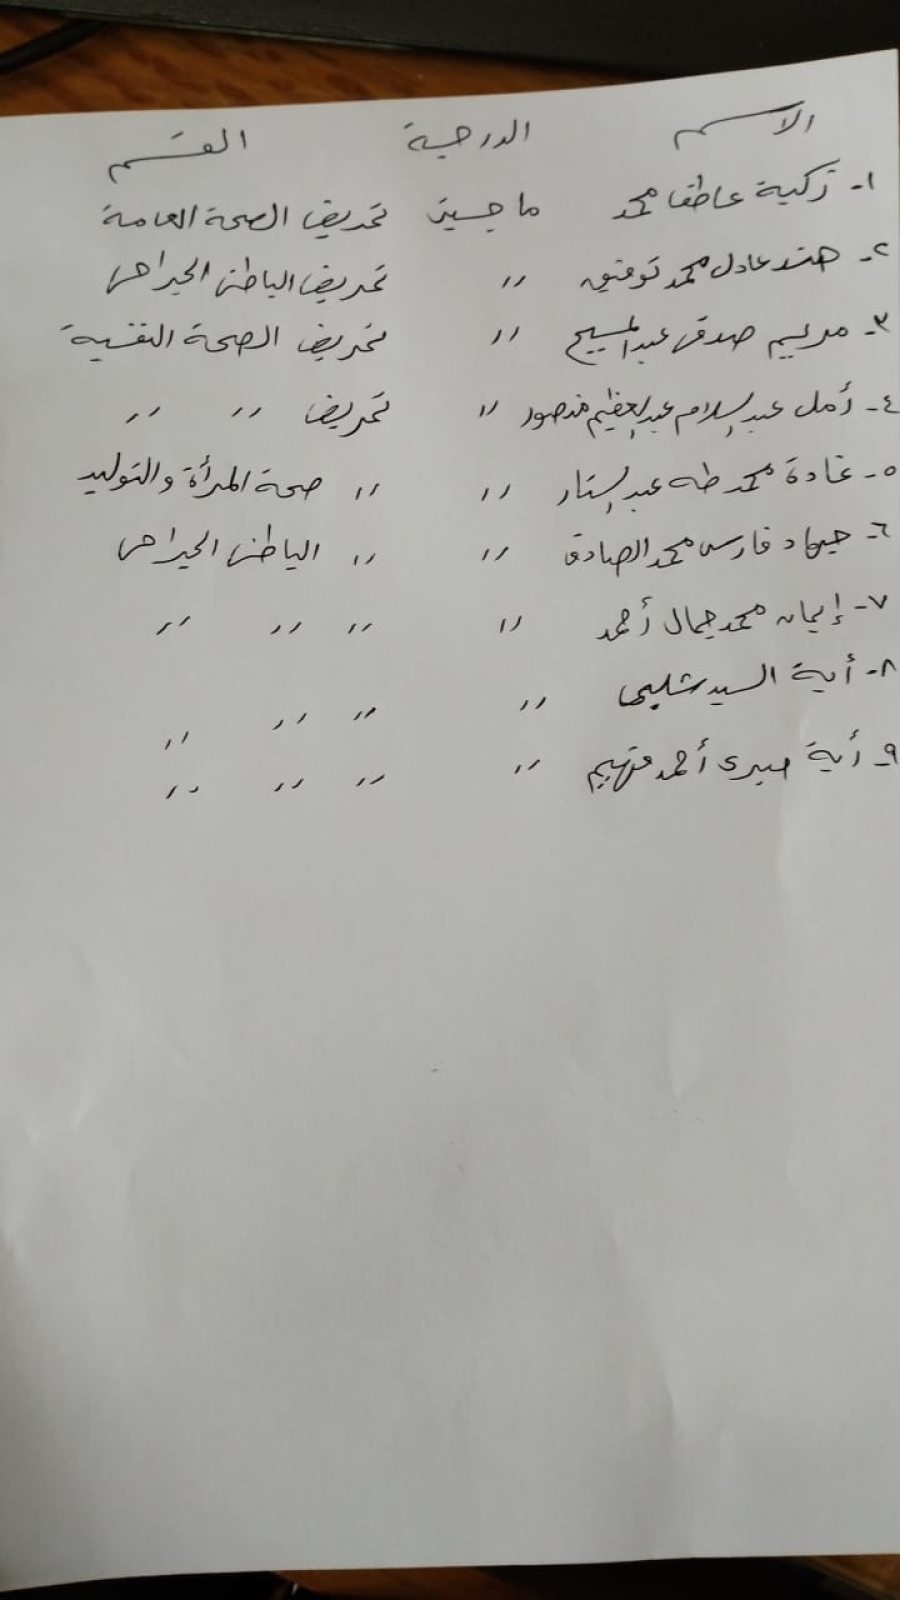 الاسم الدرجة القسم
١- زكية عاطف محمد ماجستير تمريض الصحة العامة
٢- هند عادل محمد توفيق " تمريض الباطنى الجراحى
٣- مريم صدقى عبد المسيح " تمريض الصحة النفسية
٤- أمل عبد السلام عبد العظيم منصور " تمريض " "
٥- غادة محمد طه عبد الستار " " صحة المرأة والتوليد
٦- جهاد فارس محمد الصادق " " الباطنى الجراحى
٧- إيمان محمد جمال أحمد " " " "
٨- أية السيد " " " "
٩- أية صبرى أحمد " " " "